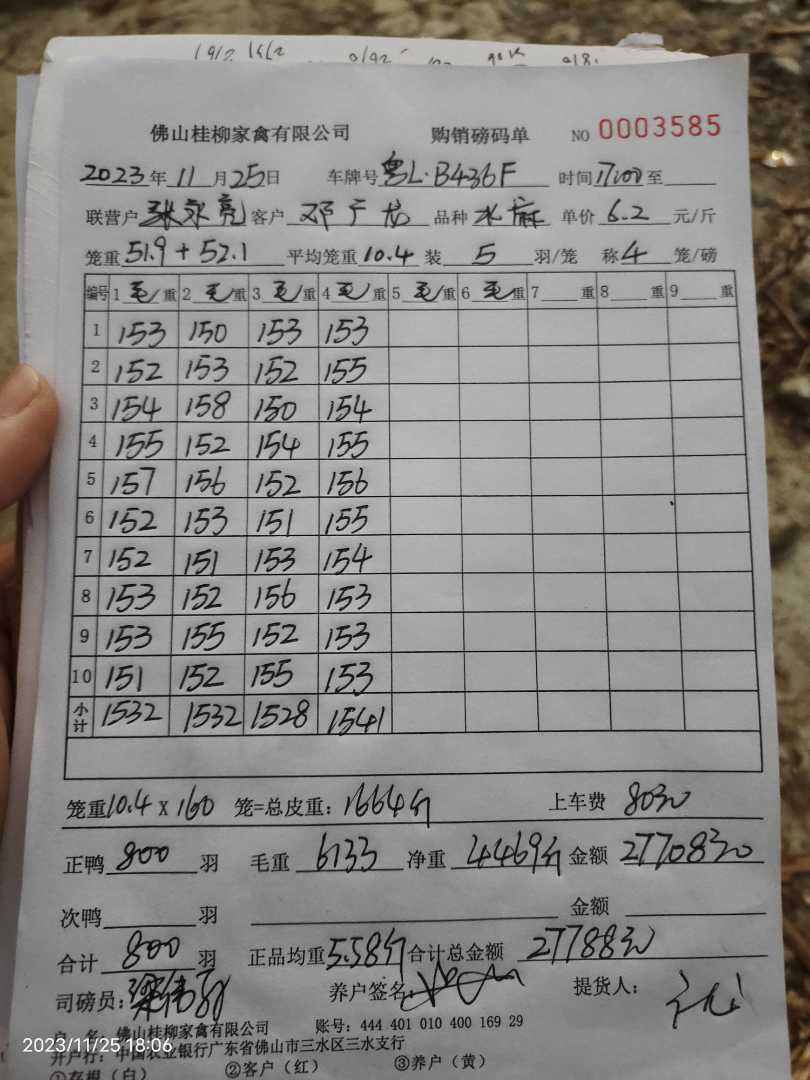 佛山桂柳家禽有限公司 购销磅码单 NO 0003585
2023年11月25日 车牌号粤L·B436F 时间17:00至
联营户张永亮客户邓广龙 品种水麻 单价6.2元/斤
笼重51.9+52.1 平均笼重10.4装5羽/笼 称4笼/磅
编号 1毛/重 2毛重 3毛/重 4毛/重 5毛/重 6毛重 7重 8重 9重
1 153 150 153 153
2 152 153 152 155
3 154 158 150 154
4 155 152 154 155
5 157 156 152 156
6 152 153 151 155
7 152 151 153 154
8 153 152 156 153
9 153 155 152 153
10 151 152 155 153
小计 1532 1532 1528 1541
笼重10.4×160笼=总皮重:1664斤 上车费80元
正鸭800羽 毛重6133净重4469斤金额27708元
次鸭羽 金额
合计800羽 正品均重5.58斤合计总金额27788元
司磅员: 养户签名: 提货人:
户 名:佛山桂柳家禽有限公司 账号:444 401 010 400 169 29
开户行:中国农业银行广东省佛山市三水区三水支行
①存根(白) ②客户(红) ③养户(黄)
2023/11/25 18:06